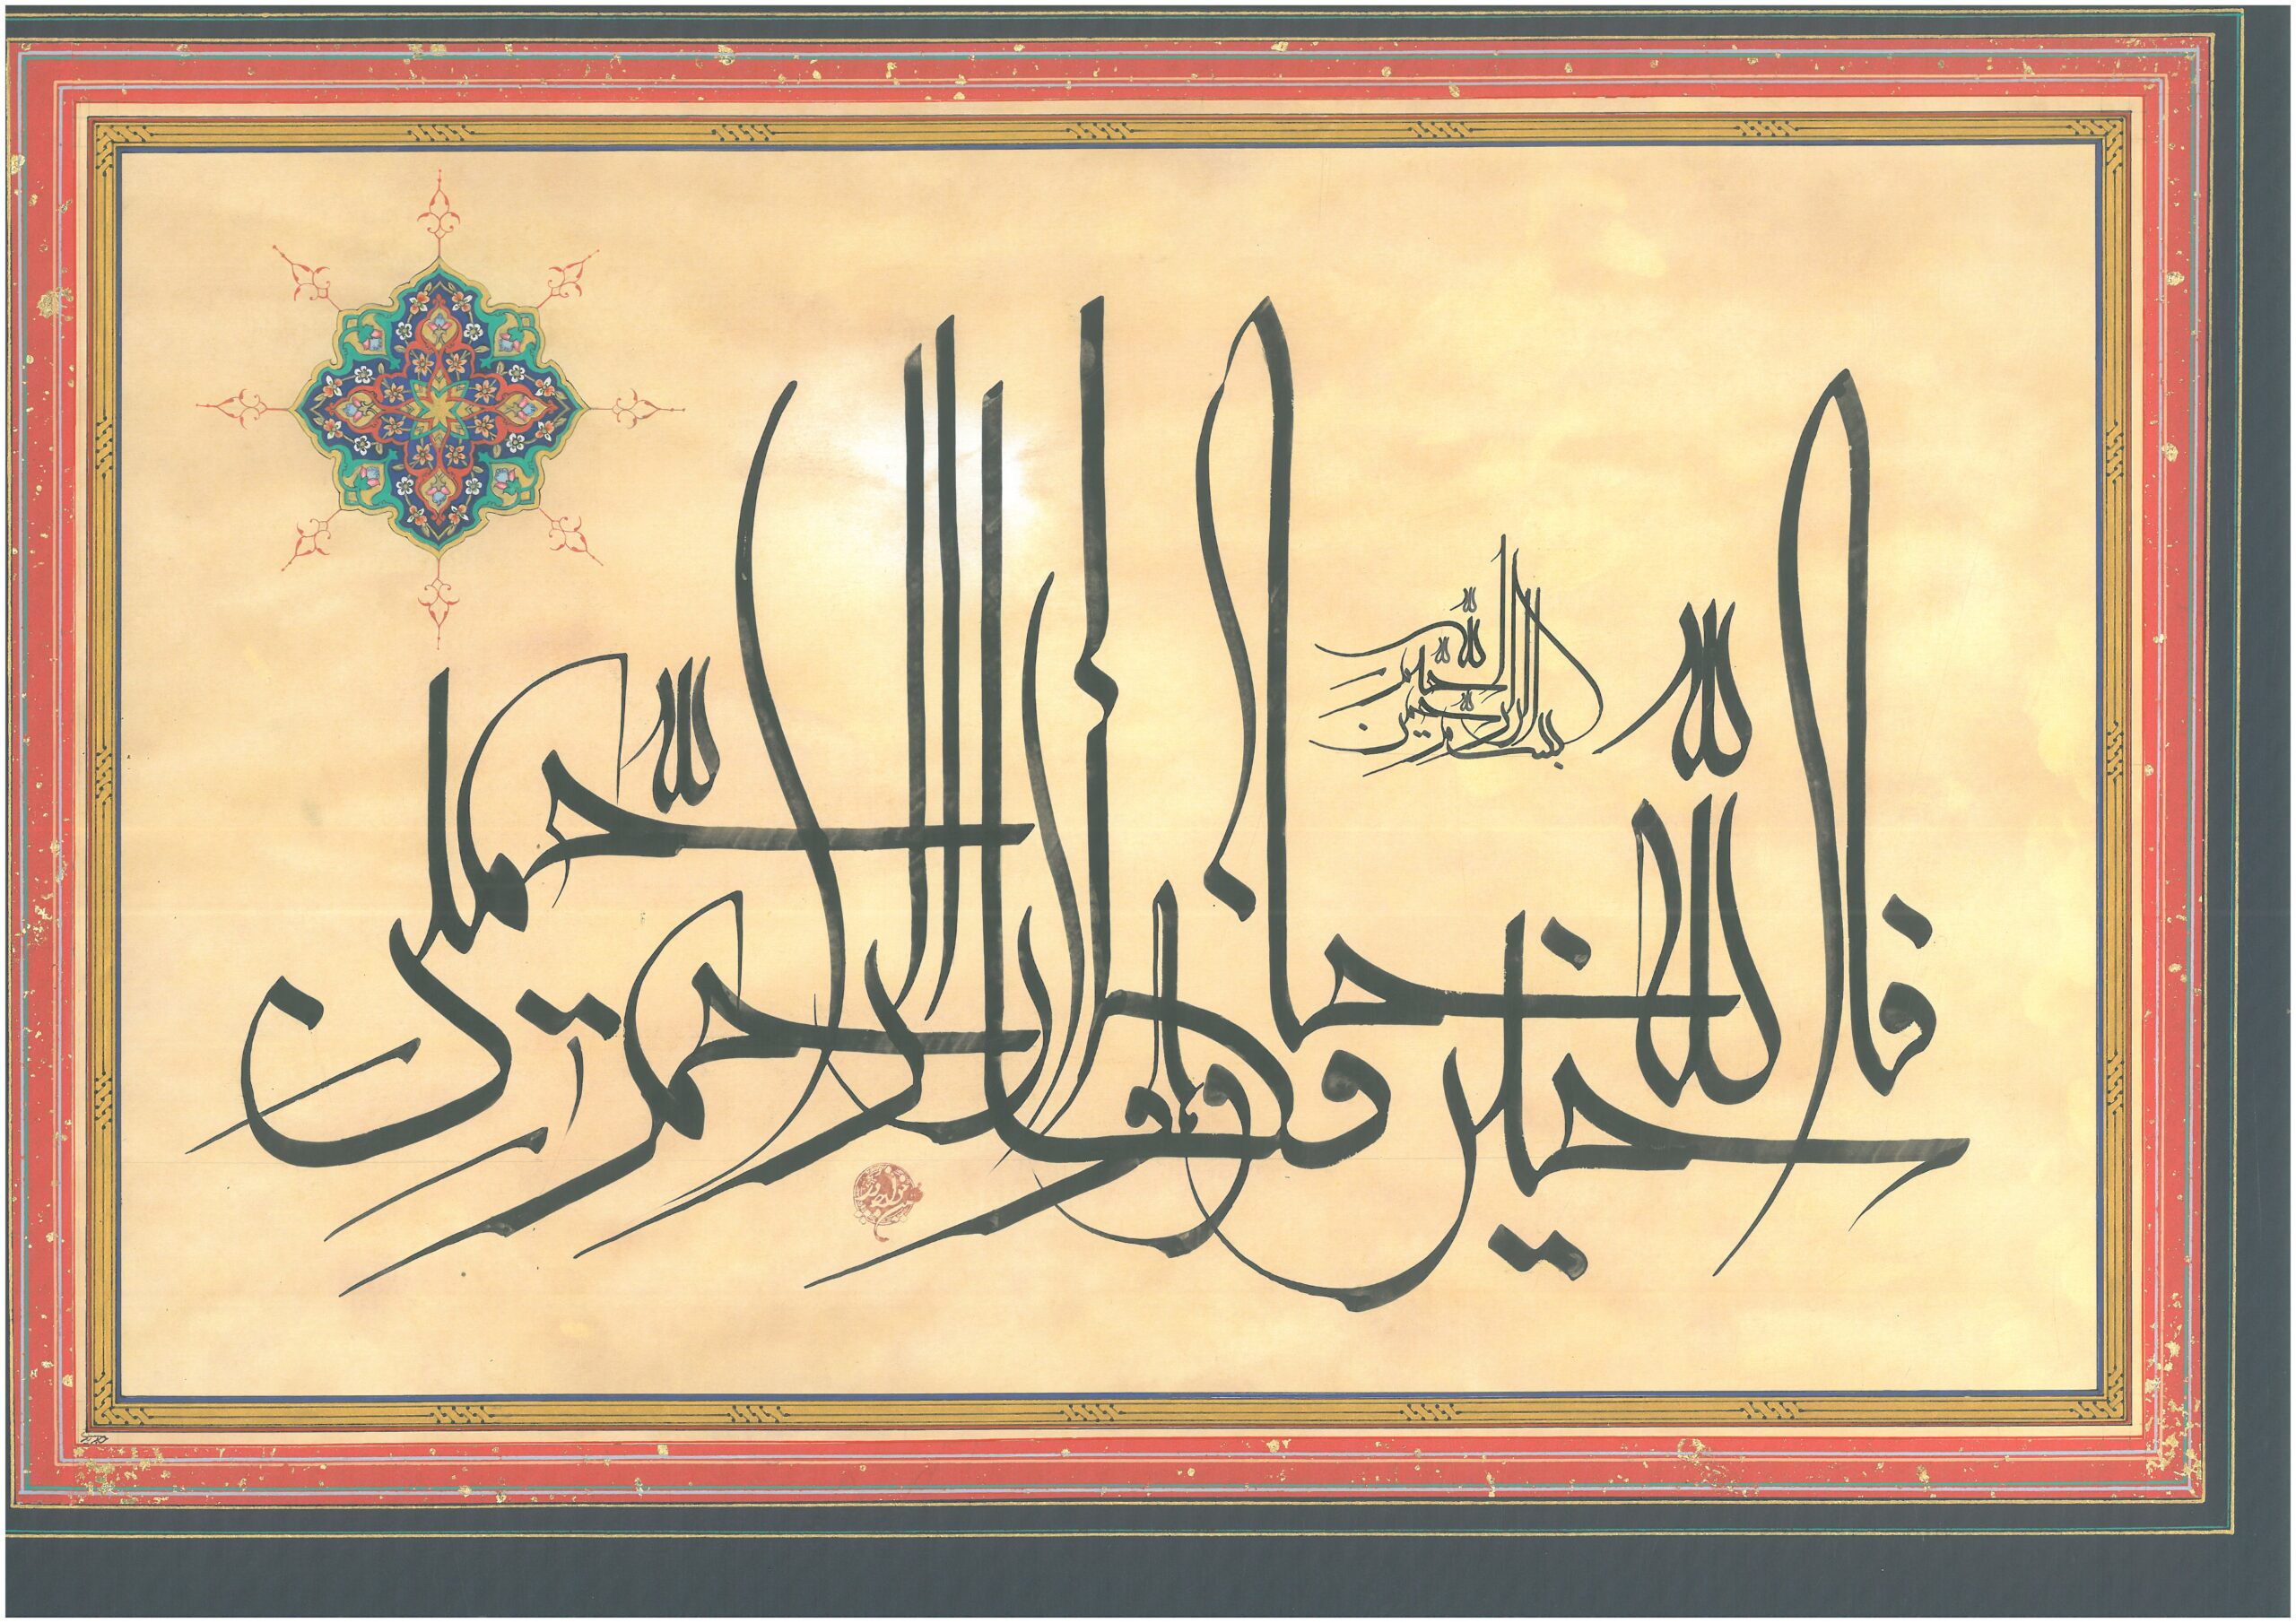 بسم الله الرحمن الرحيم
فالله خير حافظا وهو أرحم الراحمين